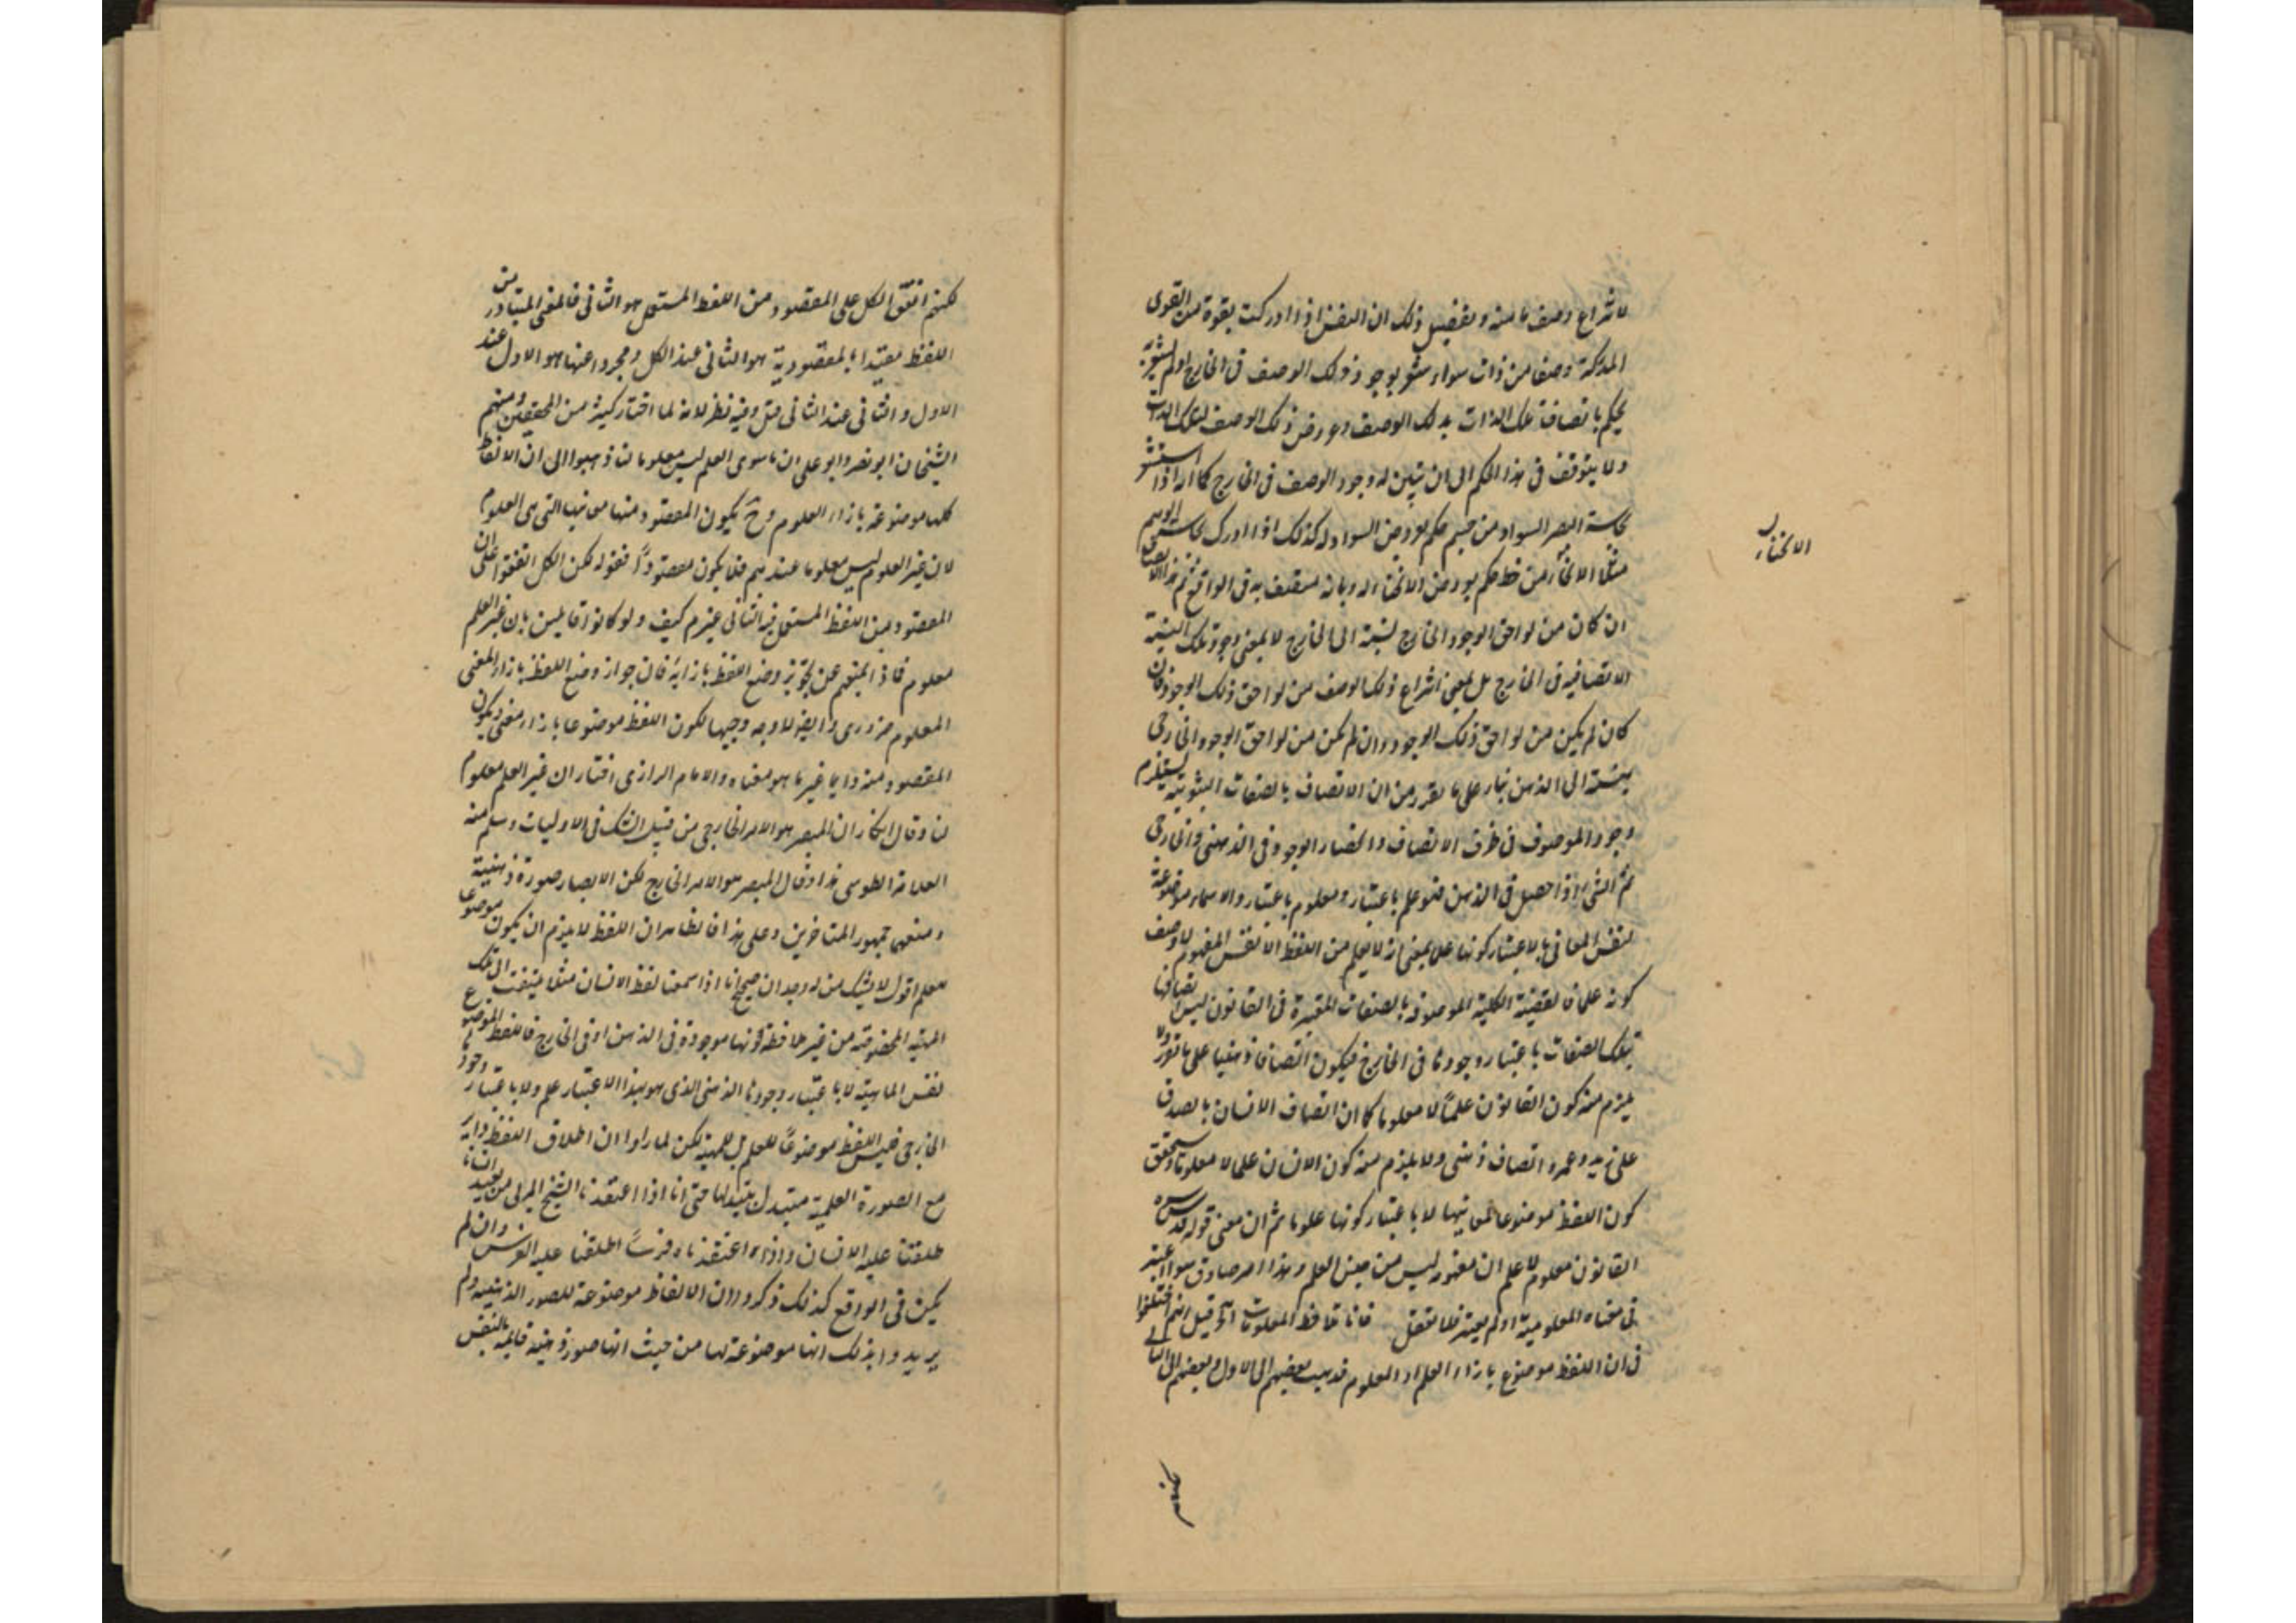 لانتزاع وصف ما منه وتفصيل ذلك ان النفس اذا ادركت بقوة من القوى
المدركة وصفا من ذات سواء شعر بوجود ذلك الوصف فى الخارج او لم يشعر به
يحكم باتصاف تلك الذات بذلك الوصف وعروض ذلك الوصف لتلك الذات
ولا يتوقف فى هذا الحكم الى ان يتبين له وجود الوصف فى الخارج كما انه اذا استشعر
بحاسة البصر السواد من جسم حكم بعروض السواد له كذلك اذا ادرك بحاسة الوهم
مثلا الانحناء من خط حكم بعروض الانحناء له وبانه متصف به فى الواقع ثم هذا الاتصاف
ان كان من لواحق الوجود الخارج نسبته الى الخارج لا بمعنى وجود تلك النسبة
الاتصافية فى الخارج بل بمعنى انتزاع ذلك الوصف من لواحق ذلك الوجود وان
كان لم يكن من لواحق ذلك الوجود وان لم يكن من لواحق الوجود الخارجى
نسبته الى الذهن بناء على ما تقرر من ان الاتصاف بالصفات الثبوتية يستلزم
وجود الموصوف فى ظرف الاتصاف وانحصار الوجود فى الذهنى والخارجى
ثم الشىء اذا حصل فى الذهن فهو علم باعتبار ومعلوم باعتبار والاسماء موضوعة
لنفس المعانى لا باعتبار كونها علما بمعنى انه لا يعلم من اللفظ الا نفس المفهوم لا وصف
كونه علما فالقضية الكلية الموصوفة بالصفات المعتبرة فى القانون ليس اتصافها
بتلك الصفات باعتبار وجودها فى الخارج فيكون اتصافا ذهنيا على ما تقرر ولا
يلزم منه كون القانون علما لا معلوما كما ان اتصاف الانسان بالصدق
على زيد وعمرو اتصاف ذهنى ولا يلزم منه كون الانسان علما لا معلوما وستحقق
كون اللفظ موضوعا لمعانيها لا باعتبار كونها علوما ثم ان معنى قوله قدس سره
القانون معلوم لا علم ان مفهومه ليس من جنس العلم وهذا امر صادق سواء اعتبر
فى معناه المعلومية او لم يعتبر فلا تغفل فانا تحافظ المعلومات اه قيل انهم اختلفوا
فى ان اللفظ موضوع بازاء العلم او المعلوم فذهب بعضهم الى الاول وبعضهم الى الثانى
لكنهم
الانحناء
لكنهم اتفق الكل على المقصود من اللفظ المستعمل هو الثانى فالمعنى المتبادر من
اللفظ مقيدا بالمقصودية هو الثانى عند الكل ومجردا عنها هو الاول عند
الاول والثانى عند الثانى قيل وفيه نظر لانه لما اختار كثير من المحققين ومنهم
الشيخان ابو نصر وابو على ان ما سوى العلم ليس معلوما لنا ذهبوا الى ان الالفاظ
كلها موضوعة بازاء العلوم وح يكون المقصود منها معانيها التى هى العلوم
لان غير العلوم ليس معلوما عندهم فلا يكون مقصودا فقوله لكن الكل اتفقوا على ان
المقصود من اللفظ المستعمل فيه الثانى غير مم كيف ولو كانوا قايلين بان غير العلم
معلوم فماذا يمنعهم عن تجويز وضع اللفظ بازايه فان جواز وضع اللفظ بازاء المعنى
المعلوم ضرورى وايضا لا وجه وجيها لكون اللفظ موضوعا بازاء معنى ويكون
المقصود منه دايما غير ما هو معناه والامام الرازى اختار ان غير العلم معلوم
لنا وقال انكار ان المبصر هو الامر الخارجى من قبيل الشك فى الاوليات وسلم منه
العلامة الطوسى هذا وقال المبصر هو الامر الخارج لكن الابصار صورة ذهنية
ومنعه جمهور المتاخرين وعلى هذا فالظاهر ان اللفظ لا يلزم ان يكون موضوعا
للعلم اقول لا يشك من له وجدان صحيح انا اذا سمعنا لفظ الانسان مثلا يلتفت الى تلك
المهية المخصوصة من غير ملاحظة كونها موجودة فى الذهن او فى الخارج فاللفظ الموضوع
لنفس الماهية لا باعتبار وجودها الذهنى الذى هو بهذا الاعتبار علم ولا باعتبار وجودها
الخارجى فليس اللفظ موضوعا للعلم بل للمهية لكن لما راوا ان اطلاق اللفظ داير
مع الصورة العلمية متبدل بتبدلها حتى انا اذا اعتقدنا الشبح المرئى من بعيد انسانا
طلقنا عليه الانسان واذا اعتقدناه فرسا اطلقنا عليه الفرس وان لم
يكن فى الواقع كذلك ذكروا ان الالفاظ موضوعة للصور الذهنية ولم
يريدوا بذلك انها موضوعة لها من حيث انها صور ذهنية قايمة بالنفس